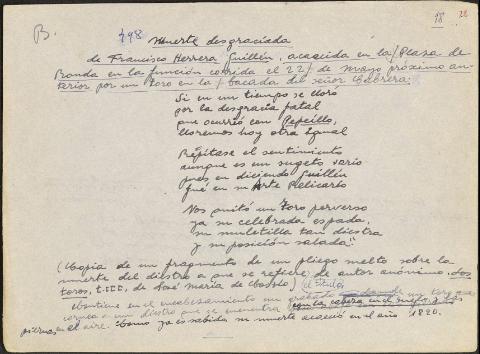 B.
498
18
28
Muerte desgraciada
de Francisco Herrera Guillén, acaecida en la/Plaza de
Ronda en la función corrida el 22/ de mayo próximo an-
terior por un Toro en la/ bacada del señor Cabrera:
Si en un tiempo se lloró
por la desgracia fatal
que ocurrió con Pepeillo,
lloremos hoy otra igual
Repitase el sentimiento
aunque es un sugeto vario
pues en diciendo Guillén
fué en su Arte Relicario
Nos quitó un Toro perverso
ya su celebrada espada,
su muletilla tan diestra
y su posición salada".
(Copia de un fragmento de un pliego suelto sobre la
muerte del diestro a que se refiere de autor anónimo. Los
toros, t. III, de José María de Cossío) el titulo
Contiene en el encabezamiento un grabado un toro que
cornea a un diestro que se encuentra con la cabeza en el suelo y las
piernas en el aire. Como ya es sabido su muerte acaeció en el año 1820.